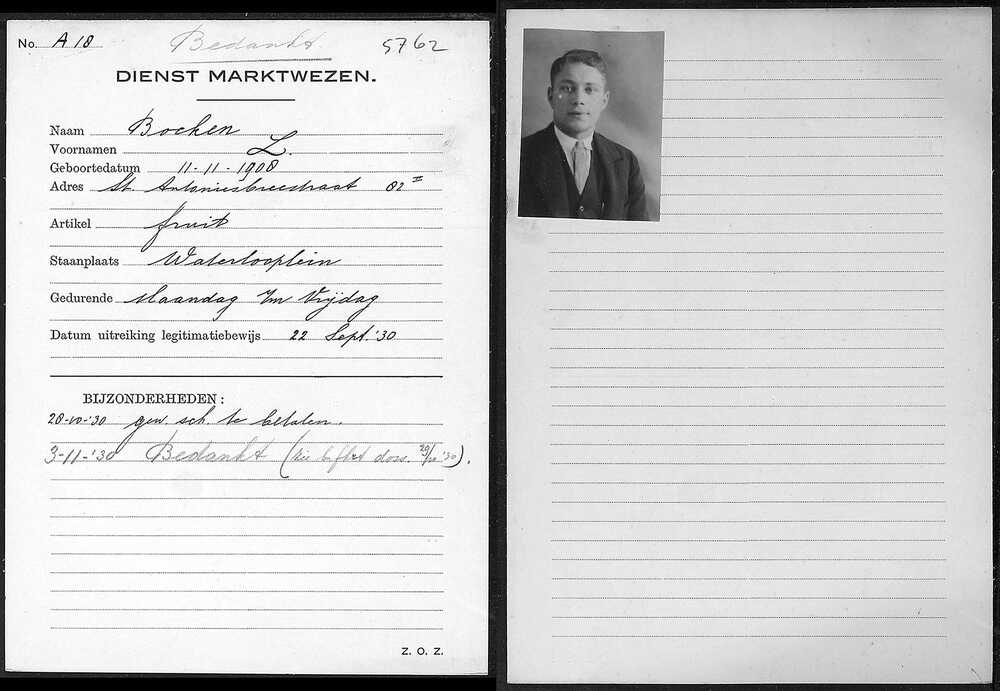 No. A 18 Bedankt. 5762
DIENST MARKTWEZEN.
Naam Bocken
Voornamen L.
Geboortedatum 11-11-1908
Adres St. Antoniesbreestraat 82 II
Artikel fruit
Staanplaats Waterlooplein
Gedurende Maandag t/m Vrijdag
Datum uitreiking legitimatiebewijs 22 Sept. '30
BIJZONDERHEDEN:
28-10-'30 gew. sch. te betalen.
3-11-'30 Bedankt (zie doss. 29/10 '30).
Z. O. Z.